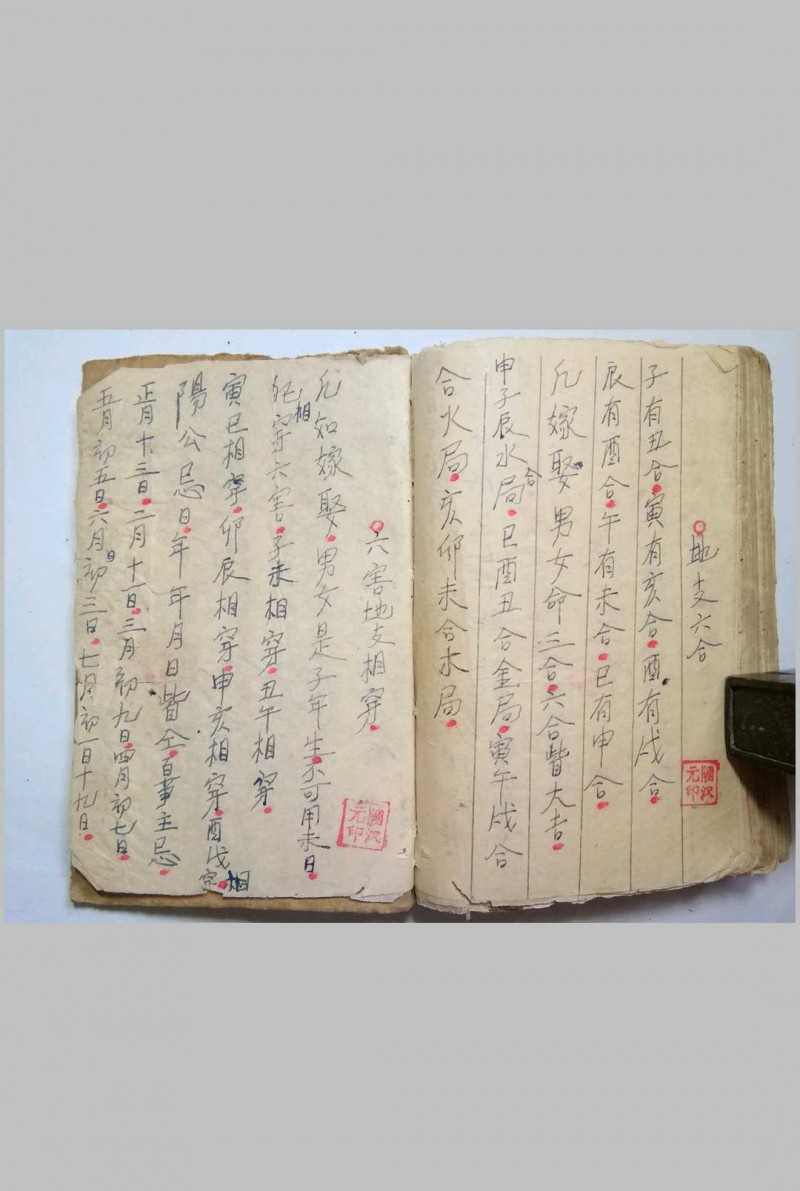 地支六合
子有丑合寅有亥合酉有戌合
辰有酉合午有未合巳有申合
凡嫁娶男女命三合六合皆大吉
申子辰水合局巳酉丑合金局寅午戌合
合火局亥卯未合木局
國漢元印
六害地支相穿
凡如嫁娶男女是子年生不可用未日
犯相穿六害子未相穿丑午相穿
寅巳相穿卯辰相穿申亥相穿酉戌相穿
陽公忌日年年月日皆仝百事主忌
正月十三日二月十一日三月初九日四月初七日
五月初五日六月初三日七月初一日十九日
國漢元印